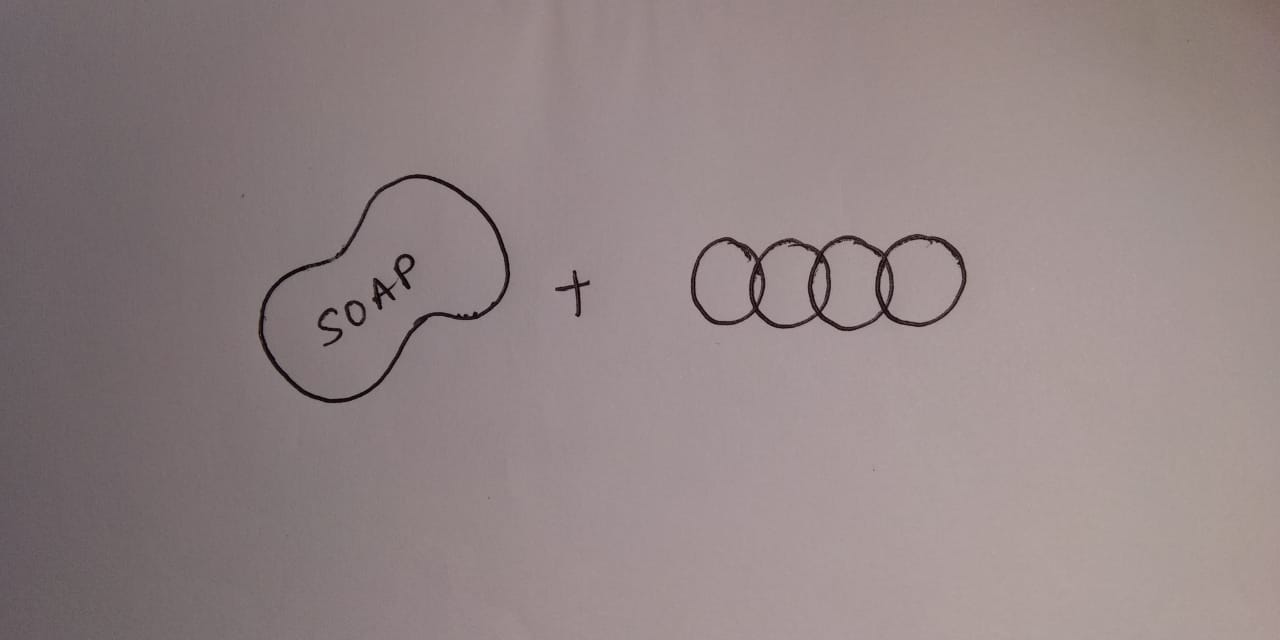 SOAP +